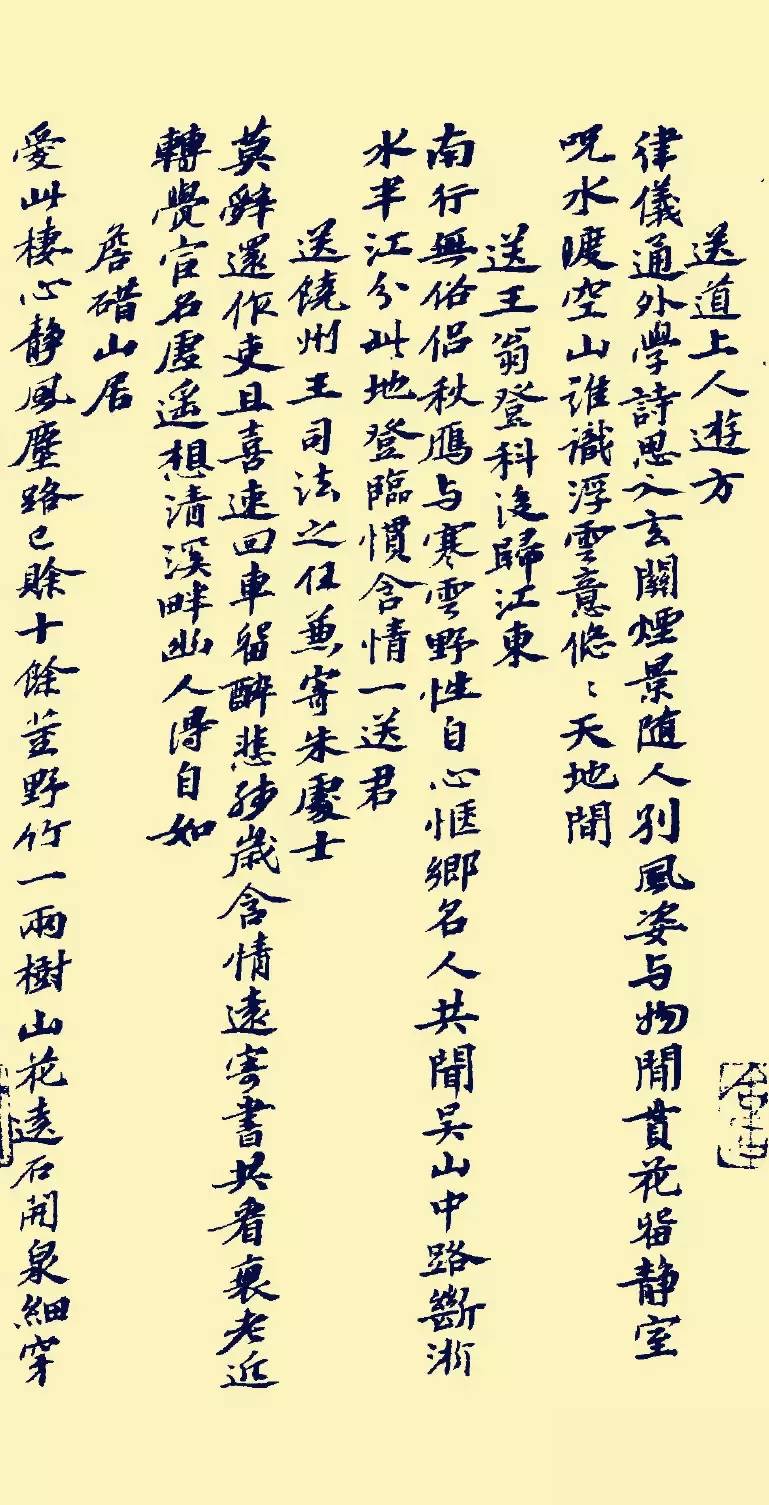 送道上人遊方
律儀通外學詩思入玄關煙景随人别風姿与物閒貫花留静室
呪水度空山誰識浮雲意悠〻天地間
送王翁登科後歸江東
南行無俗侣秋鴈与寒雲野性自心惬鄉名人共聞吴山中路斷浙
水半江分此地登臨慣含情一送君
送饒州王司法之任兼寄朱處士
莫辤還作吏且喜速回車留醉悲殘歲含情遠寄書共看衰老近
轉覺官名虚遥想清溪畔幽人得自如
詹碏山居
愛此棲心静風塵路已賒十餘莖野竹一兩樹山花遶石開泉細穿